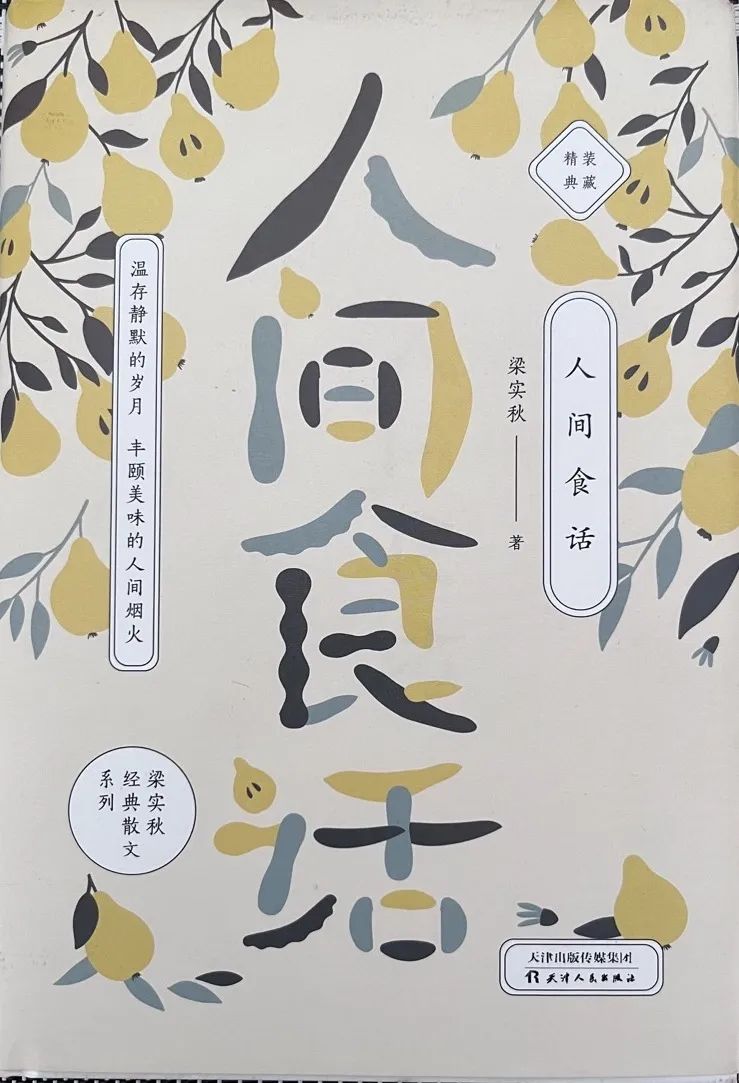 人间食话
精装
典藏
人间食话
梁实秋 著
温存静默的岁月 丰颐美味的人间烟火
梁实秋
经典散文
系列
天津出版传媒集团
天津人民出版社